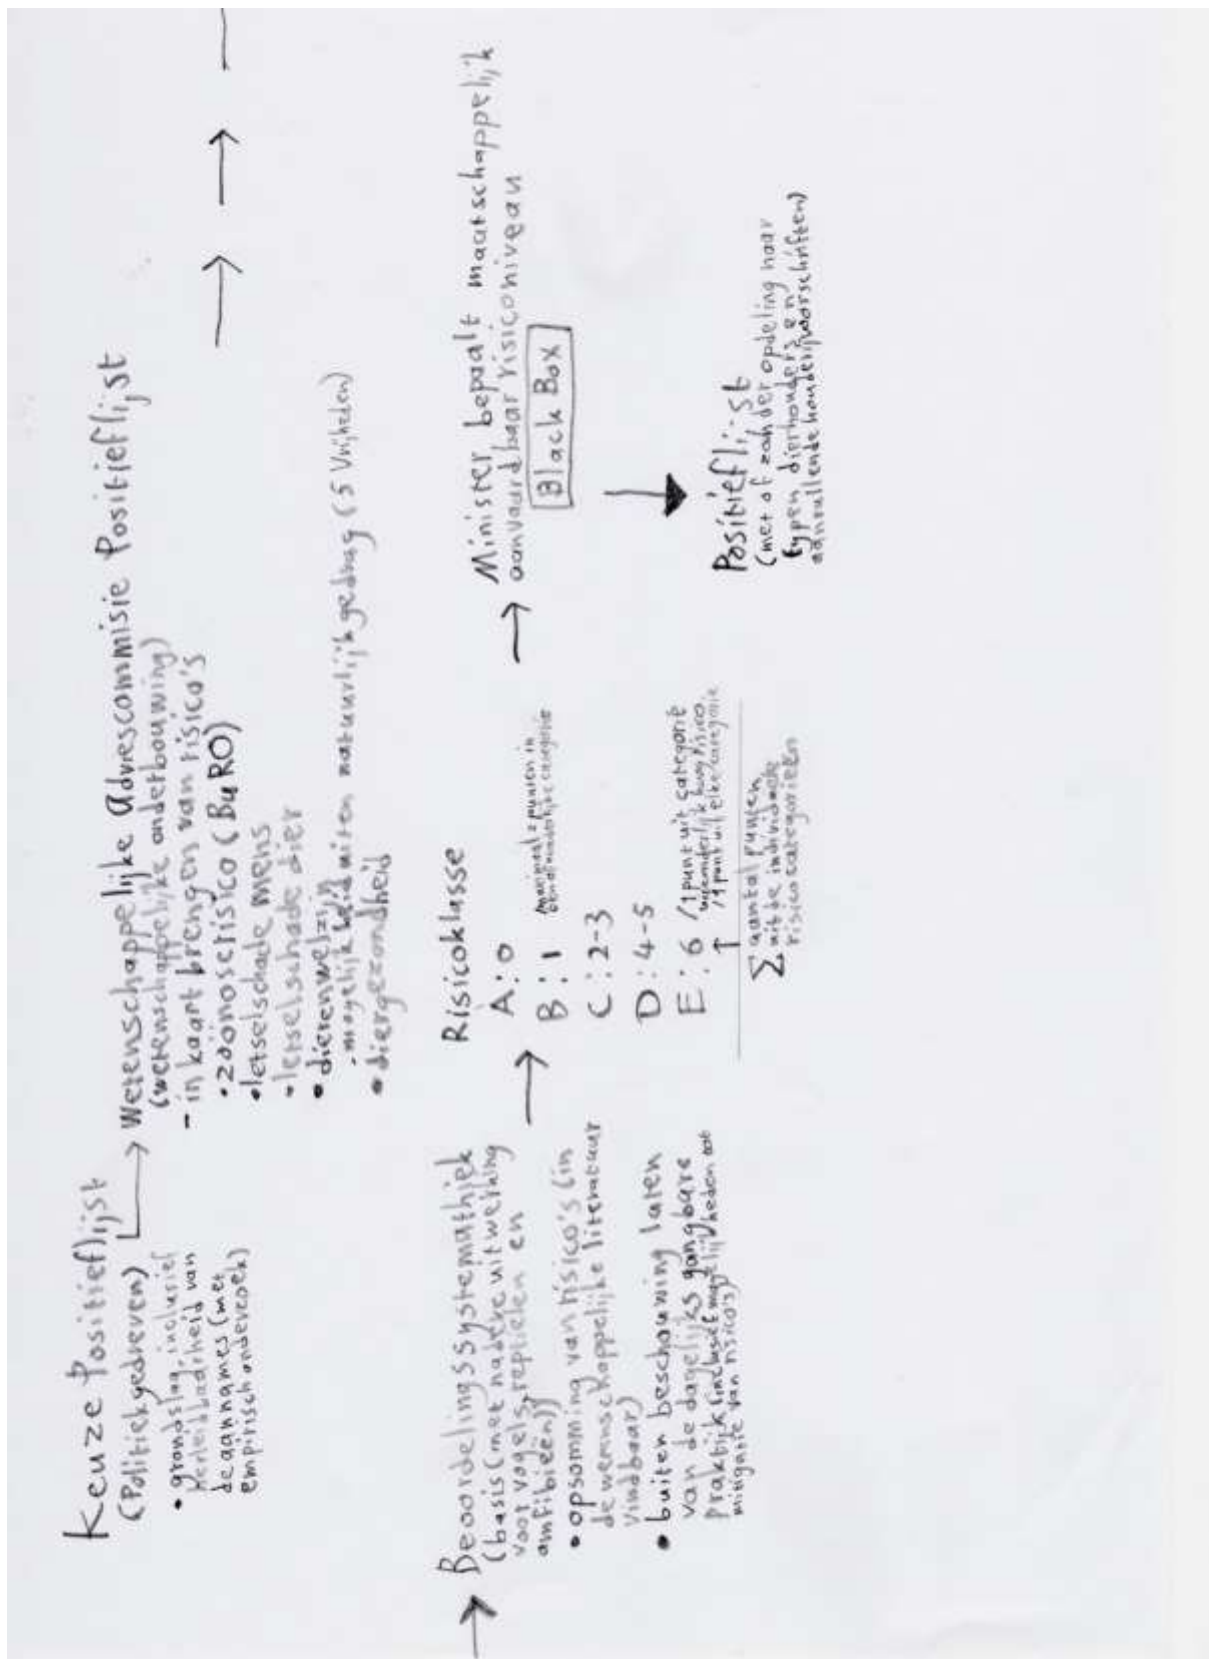 Keuze Positieflijst
(Politiekgedreven)
• grondslag, inclusief
herleidbaarheid van
de aannames (met
empirisch onderzoek)
Wetenschappelijke Adviescommisie Positieflijst
(wetenschappelijke onderbouwing)
- in kaart brengen van risico's
• zoönoserisico (BuRO)
• letselschade mens
• letselschade dier
• dierenwelzijn
- mogelijkheid uiten natuurlijk gedrag (5 Vrijheden)
• diergezondheid
Beoordelingssystemathiek
(basis (met nadere uitwerking
voor vogels, reptielen en
amfibieën))
• opsomming van risico's (in
de wetenschappelijke literatuur
vindbaar)
• buiten beschouwing laten
van de dagelijks gangbare
praktijk (inclusief mogelijkheden tot
mitigatie van risico's)
Risicoklasse
A: 0
B: 1 (maximaal 2 punten in
categorie
C: 2-3
D: 4-5
E: 6 /1 punt uit categorie
risico
/1 punt uit elke categorie
∑ aantal punten
uit de individuele
risicocategorieën
Minister bepaalt maatschappelijk
aanvaardbaar risiconiveau
Black Box
Positieflijst
(met of zonder opdeling naar
typen dierhouders en
aanvullende houderijvoorschriften)